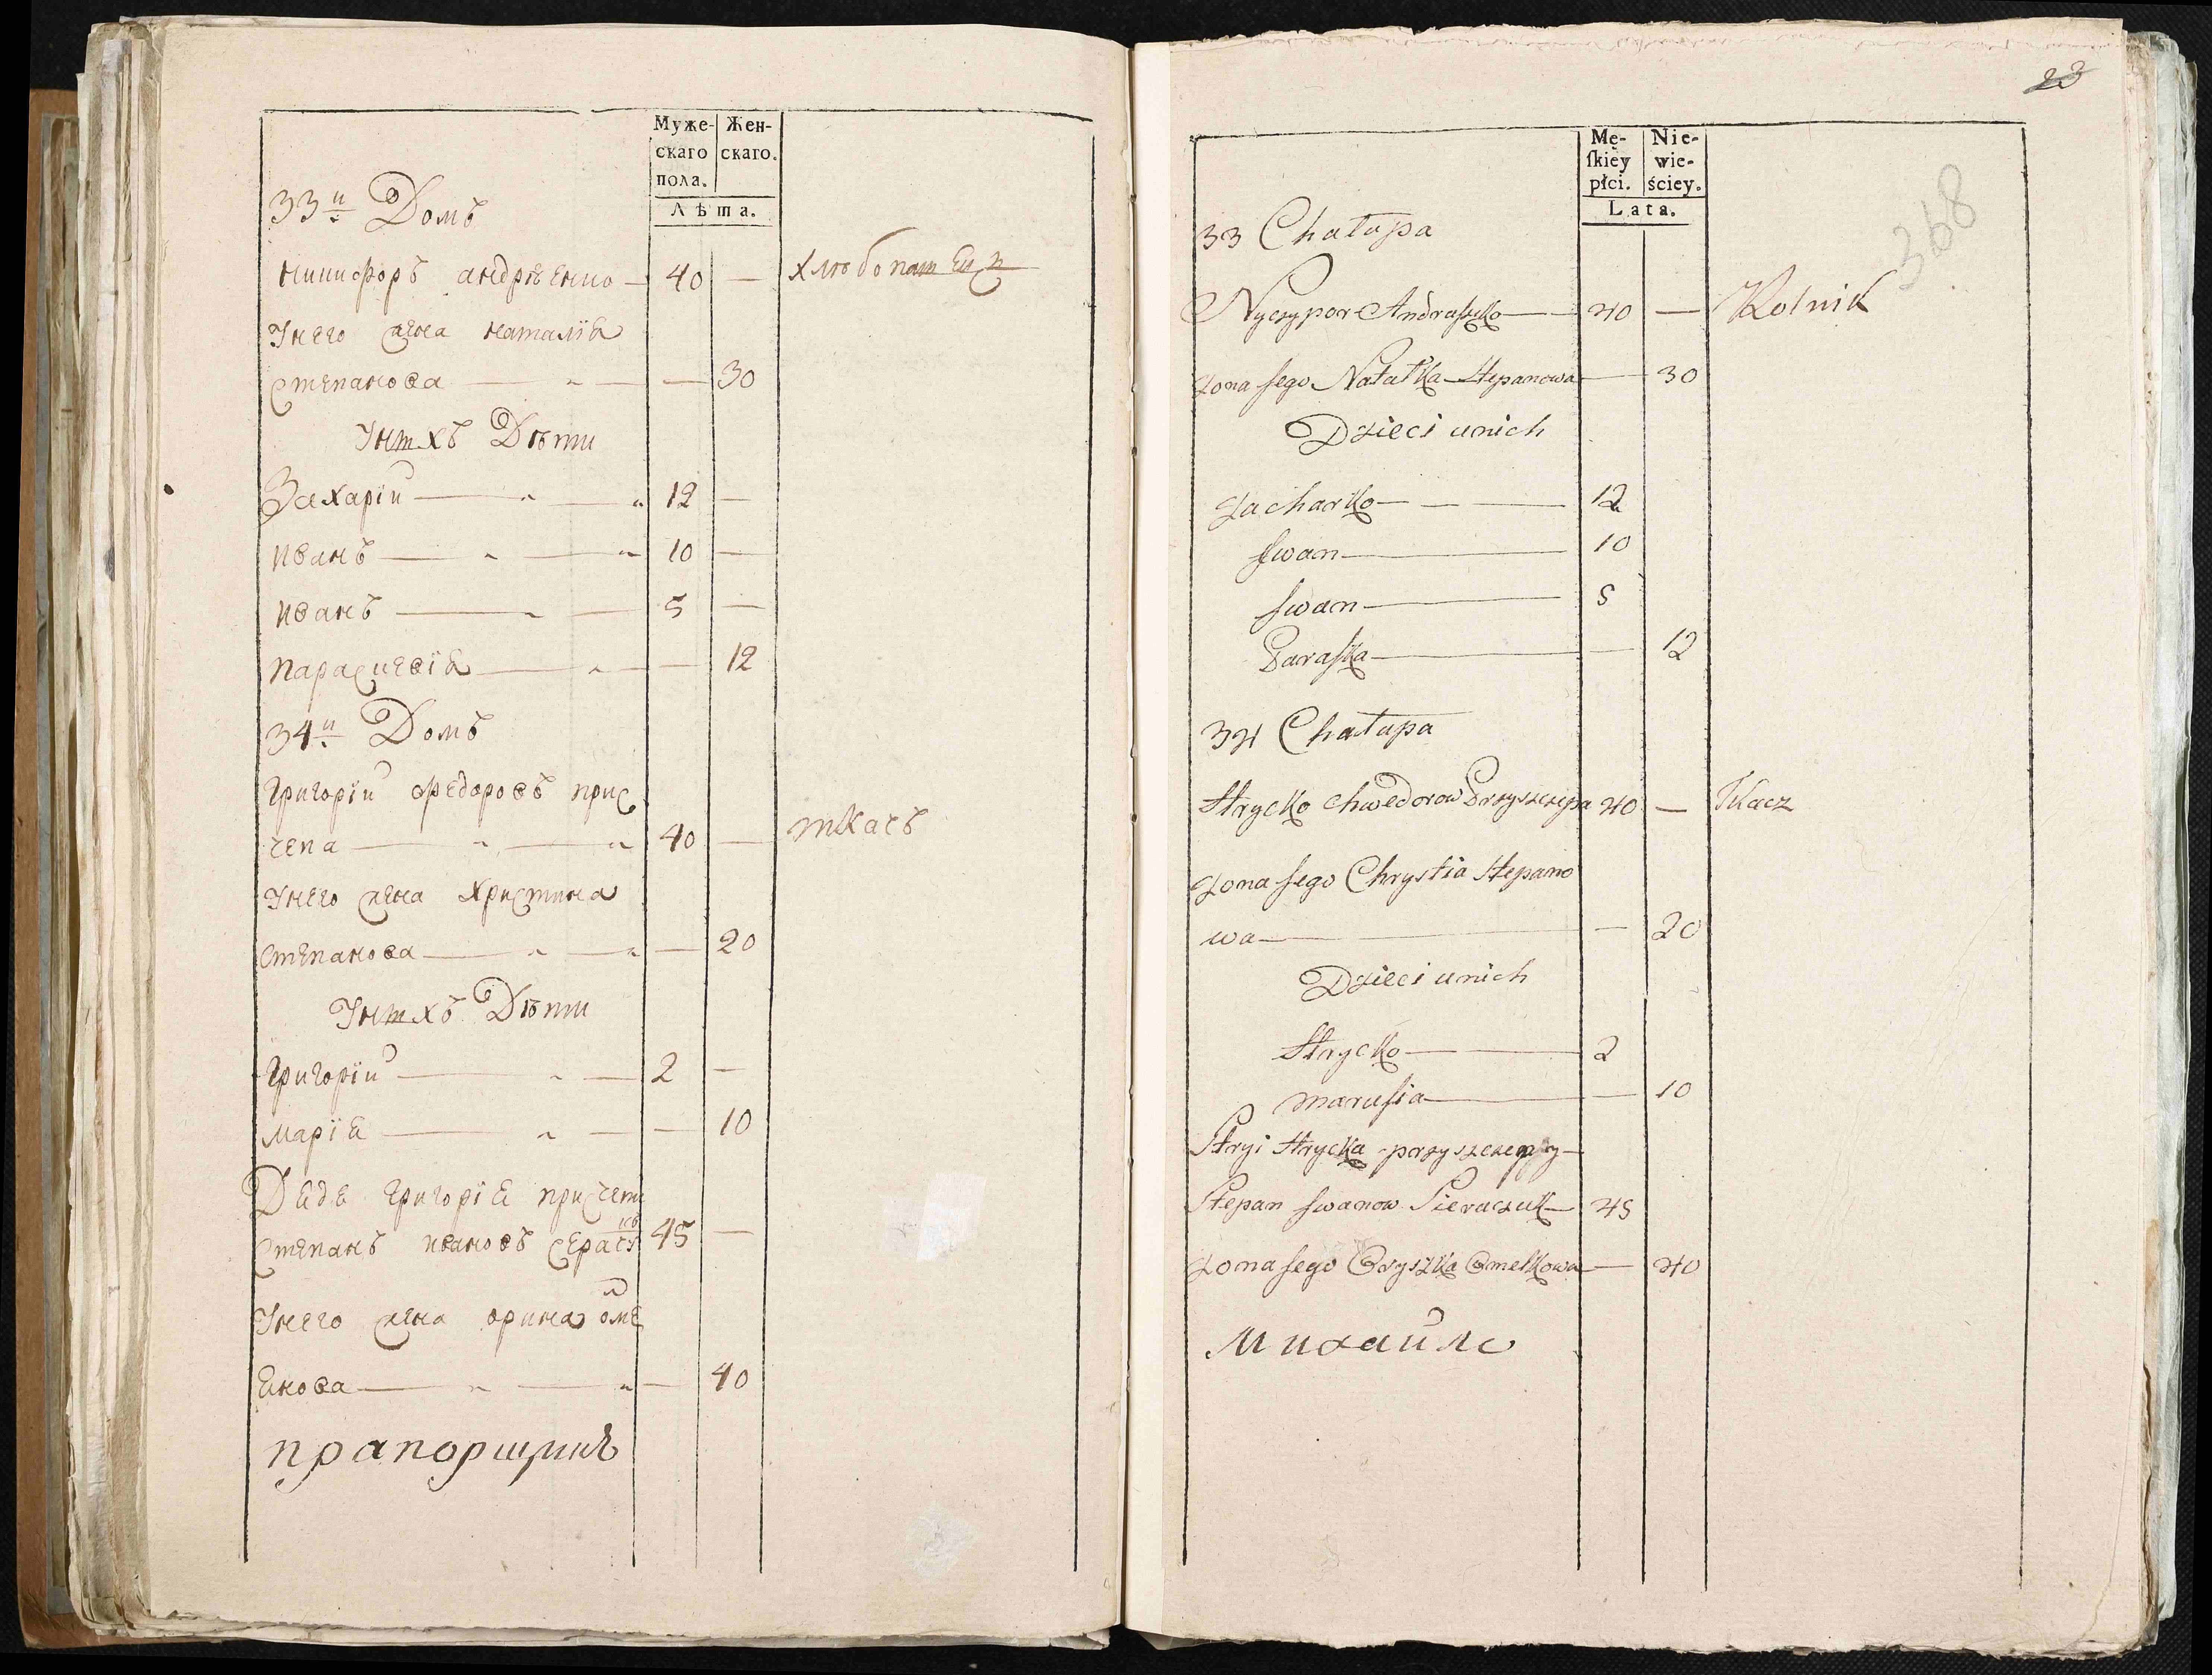 Муже-
скаго
пола.
Жен-
скаго.
Лѣта.
33й Домъ
Никифоръ Андрѣенко — 40 — хлебопашец
У него жена Наталія
Степанова — — 30
У них Дѣти
Захарій — 12 —
Иванъ — 10 —
Иванъ — 5 —
Параскевія — — 12
34й Домъ
Григорій Федоровъ Прис
чепа — 40 — ткачъ
У него жена Христина
Степанова — — 20
У них Дѣти
Григорій — 2 —
Марія — — 10
Дядя Григорія Присчепи
Степанъ Ивановъ 45 —
У него жена Орина Оме
лянова — — 40
прапорщикъ
23
368
Mę-
ſkiey
płci.
Nie-
wie-
ściey.
Lata.
33 Chałupa
Nyczypor Andraszko — 40 — Rolnik
Zona Jego Natałka Stepanowa — 30
Dzieci unich
Zacharko — 12
Iwan — 10
Iwan — 5
Paraska — — 12
34 Chałupa
Hrycko Chwedorow Przyszczepa 40 — Tkacz
Zona Jego Chrystia Stepano
wa — — 20
Dzieci unich
Hrycko — 2
Marusia — — 10
Stryi Hrycka Przyszczepy —
Stepan Iwanow 45
Zona Jego Oryszka Omelkowa — 40
Михайло